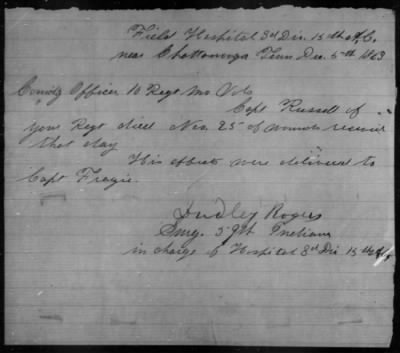 Field Hospital 3d Div. 15th A.C.
near Chattanooga Tenn Dec. 5th 1863
Comdg Officer 10 Regt Mo Vols
Capt Russell of
your Regt died Nov. 25th of wounds received
that day
His effects were delivered to
Capt
Dudley Rogers
Surg. 59th Indiana
in charge of Hospital 3d Div 15th A.C.